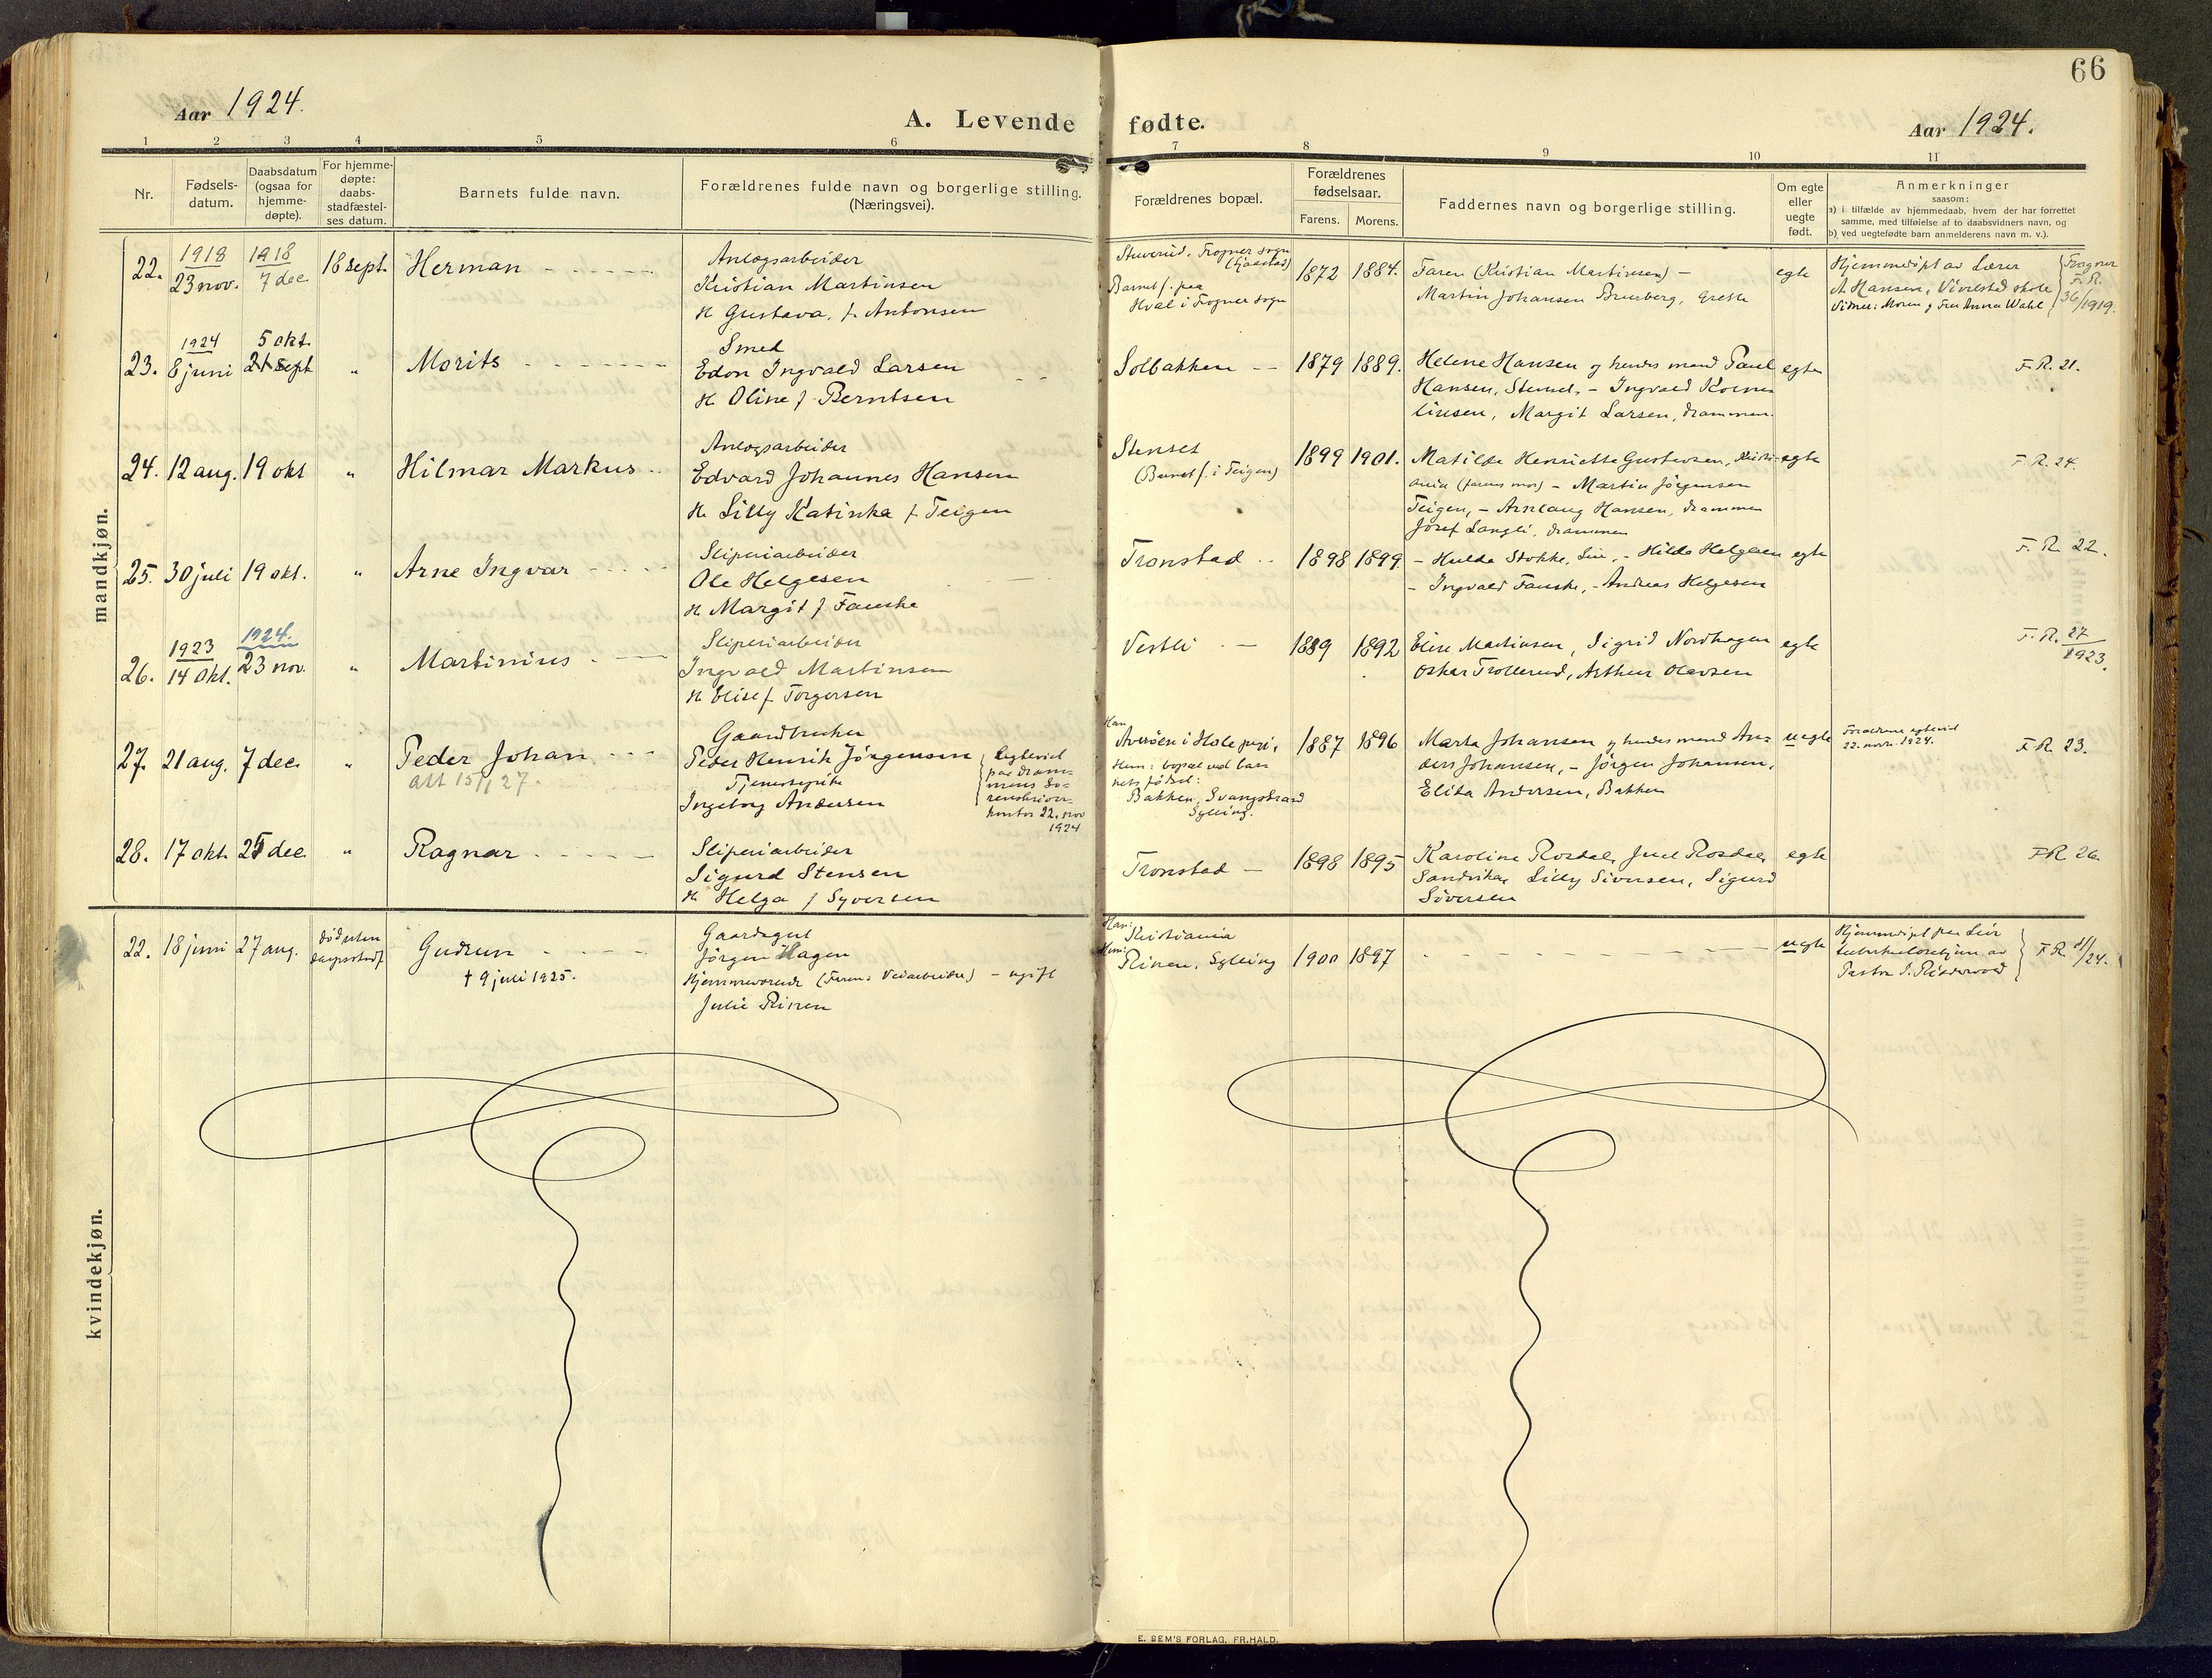 66
Aar 1924.
A. Levende fødte.
Aar 1924.
1 2 3 4 5 6 7 8 9 10 11
Nr.
Fødsels-
datum.
Daabsdatum
(ogsaa for
hjemme-
døpte).
For hjemme-
døpte:
daabs-
stadfæstel-
ses datum.
Barnets fulde navn.
Forældrenes fulde navn og borgerlige stilling.
(Næringsvei).
Forældrenes bopæl.
Forældrenes
fødselsaar.
Farens. Morens.
Faddernes navn og borgerlige stilling.
Om egte
eller
uegte
født.
Anmerkninger
saasom:
a) i tilfælde av hjemmedaab, hvem der har forrettet
samme, med tilføielse af to daabsvidners navn, og
b) ved uegtefødte barn anmelderens navn m. v.).
mandkjøn.
22. 1918 23 nov. 1918 7 dec 18 sept. Herman
Anlægsarbeider
Kristian Martinsen
H Gustava, f. Antonsen
Stuverud, Frogner sogn
(Gaasrud)
Barnet f. paa
Hval i Frogner sogn
1872 1884.
Faren (Kristian Martinsen) –
Martin Johansen Bruberg, Grette
egte
Hjemmedøpt av Lærer
A. Hansen, Vivelstad skole
Vidner: Moren og Fru Anna Wahl
Frogner
F.R.
36/1919.
23. 1924 8 juni 5 okt. 21 sept " Morits
Smed
Edon Ingvald Larsen
H. Oline f. Berntsen
Solbakken
1879 1889.
Helene Hansen og hendes mand Paul
Hansen, Stensd, – Ingvald Korne-
liusen, Margit Larsen, Drammen.
egte
F.R. 21.
24. 12 aug. 19 okt " Hilmar Markus
Anlægsarbeider
Edvard Johannes Hansen
H. Lilly Katinka f. Teigen
Stenset
(Barnet f. i Teigen)
1899 1901.
Matilde Henriette Gustavsen, Kristi-
ania (farens mor) – Martin Jörgensen
Teigen, – Arnlaug Hansen, Drammen
Josef Langli, Drammen
egte
F.R. 24.
25. 30 juli 19 okt. " Arne Ingvar
Sliperiarbeider
Ole Helgesen
H Margit f. Fauske
Tronstad
1898 1899.
– Hulda Stokke, Lier, – Hilda Helgesen
– Ingvald Fauske, – Andreas Helgesen
egte
F.R. 22.
26. 1923 14 Okt. 1924. 23 nov. " Martinius
Sliperiarbeider
Ingvald Martinsen
H Elise f. Torgersen
Vestli
1889 1892
Elise Martinsen, Sigrid Nordhagen
Oskar Trollerud, Arthur Olavsen
egte
F.R. 27
1923.
27. 21 aug. 7 dec. Peder Johan
att 15/1 27.
Gaardbruker
Peder Henrik Jörgensen
Tjenestepike
Ingeborg Andersen
Egteviet
paa Dram-
mens So-
renskriver-
kontor 22. nov
1924
Han:
Averöen i Hole pgj.,
Hun: bopæl ved bar-
nets fødsel:
Bakken, Svangstrand
Sylling.
1887 1896
Marta Johansen og hendes mand An-
ders Johansen, – Jörgen Johansen,
Elida Andersen, Bakken
uegte
Forældrene egteviet
22. novr. 1924.
F.R. 23.
28. 17 okt. 25 dec. " Ragnar
Sliperiarbeider
Sigurd Stensen
H Helga f Syversen
Tronstad –
1898 1895
Karoline Rosdal, Juel Rosdal,
Sandvika, Lilly Siversen, Sigurd
Siversen
egte
F.R. 26.
kvindekjøn.
22. 18 juni 27 aug. død uten daapsstadf. Gudrun
† 9 juli 1925.
Gaardsgut
Jörgen Hagen
Hjemmeværende (Faren: Veiarbeider) – ugift
Julie Rinen
Han:
Kristiania
Hun:
Rinen, Sylling
1900 1897
uegte
Hjemmedøpt paa Lier
tuberkulosehjem av
Pastor S. Riddervold
F.R. /24.
E. SEM'S FORLAG, FR.HALD.